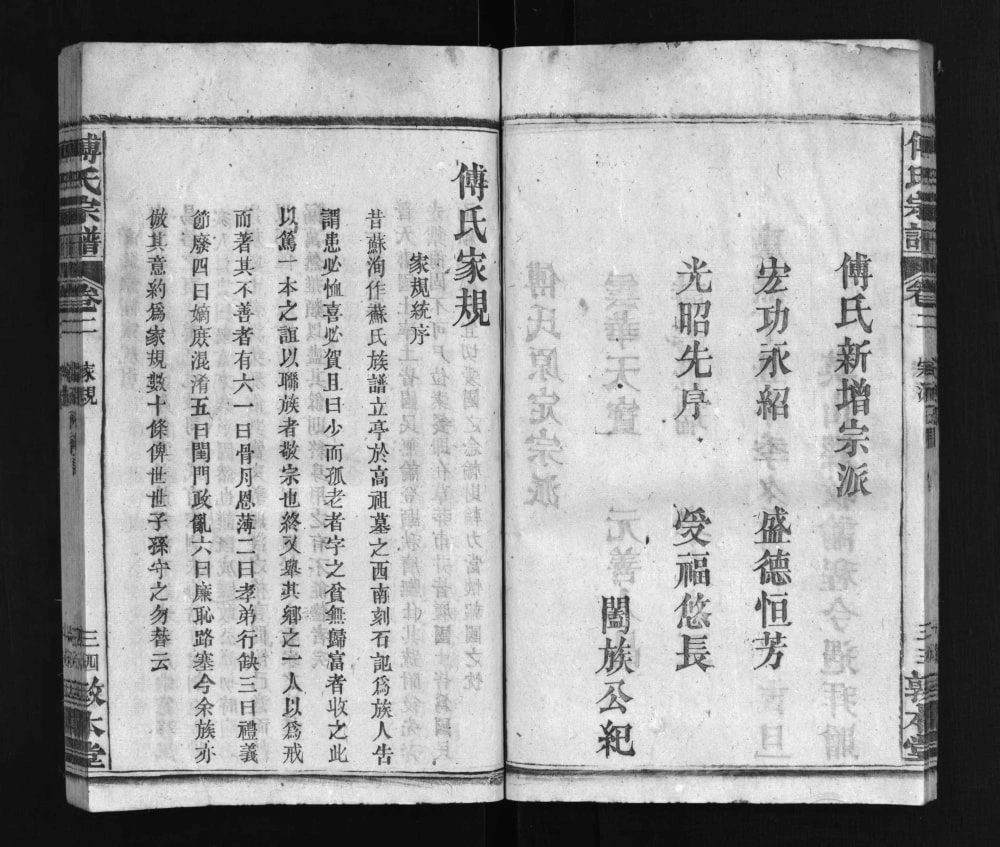 傅氏宗譜 卷二 宗派 三三 敦本堂
傅氏新增宗派
宏功永紹 盛德恒芳
光昭先序 受福悠長
闔族公紀
傅氏家規
家規統序
昔蘇洵作蘇氏族譜立亭於高祖墓之西南刻石記為族人告
謂患必恤喜必賀且曰少而孤老者字之貧無歸富者收之此
以篤一本之誼以聯族者敬宗也終又舉其鄉之一人以為戒
而著其不善者有六一曰骨月恩薄二曰孝弟行缺三曰禮義
節廢四曰嫡庶混淆五曰閨門政亂六曰廉恥路塞今余族亦
倣其意約為家規數十條俾世世子孫守之勿替云
傅氏宗譜 卷二 家規 三四 敦本堂